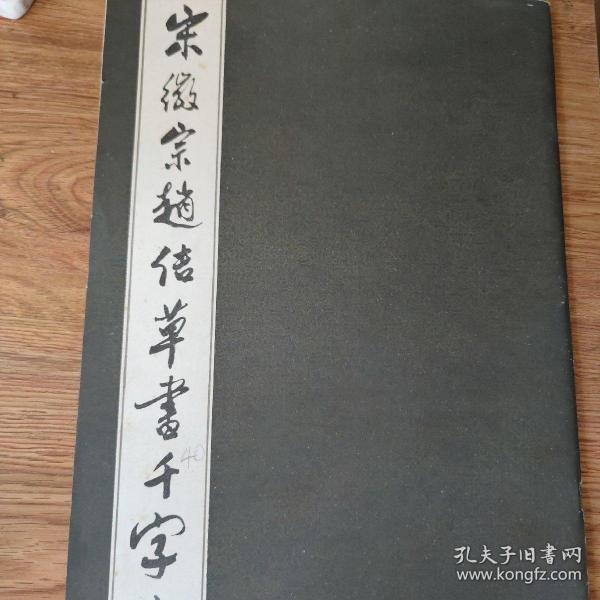 宋徽宗趙佶草書千字
40
孔夫子旧书网
www.kongfz.com